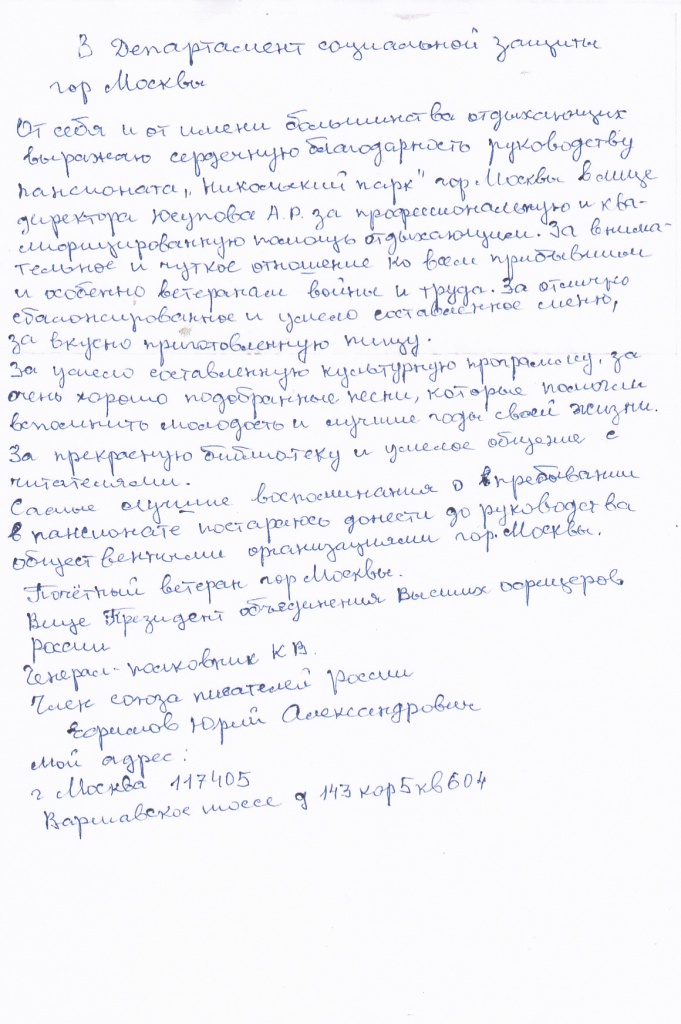 В Департамент социальной защиты
гор Москвы
От себя и от имени большинства отдыхающих
выражаю сердечную благодарность руководству
пансионата „Никольский парк" гор. Москвы в лице
директора Юсупова А.Р. за профессиональную и ква-
лифицированную помощь отдыхающим. За внима-
тельное и чуткое отношение ко всем прибывшим
и особенно ветеранам войны и труда. За отлично
сбалонсированное и умело составленное меню,
за вкусно приготовленную пищу.
За умело составленную культурную программу, за
очень хорошо подобранные песни, которые помогли
вспомнить молодость и лучшие годы своей жизни.
За прекрасную библиотеку и умелое общение с
читателями.
Самые лучшие воспоминания о пребывании
в пансионате постараюсь донести до руководства
общественными организациями гор. Москвы.
Почётный ветеран гор Москвы.
Вице Президент объединения Высших офицеров
России
Генерал-полковник К В.
Член союза писателей России
Юрий Александрович
Мой адрес:
г Москва 117405
Варшавское шоссе д 143 кор 5 кв 604